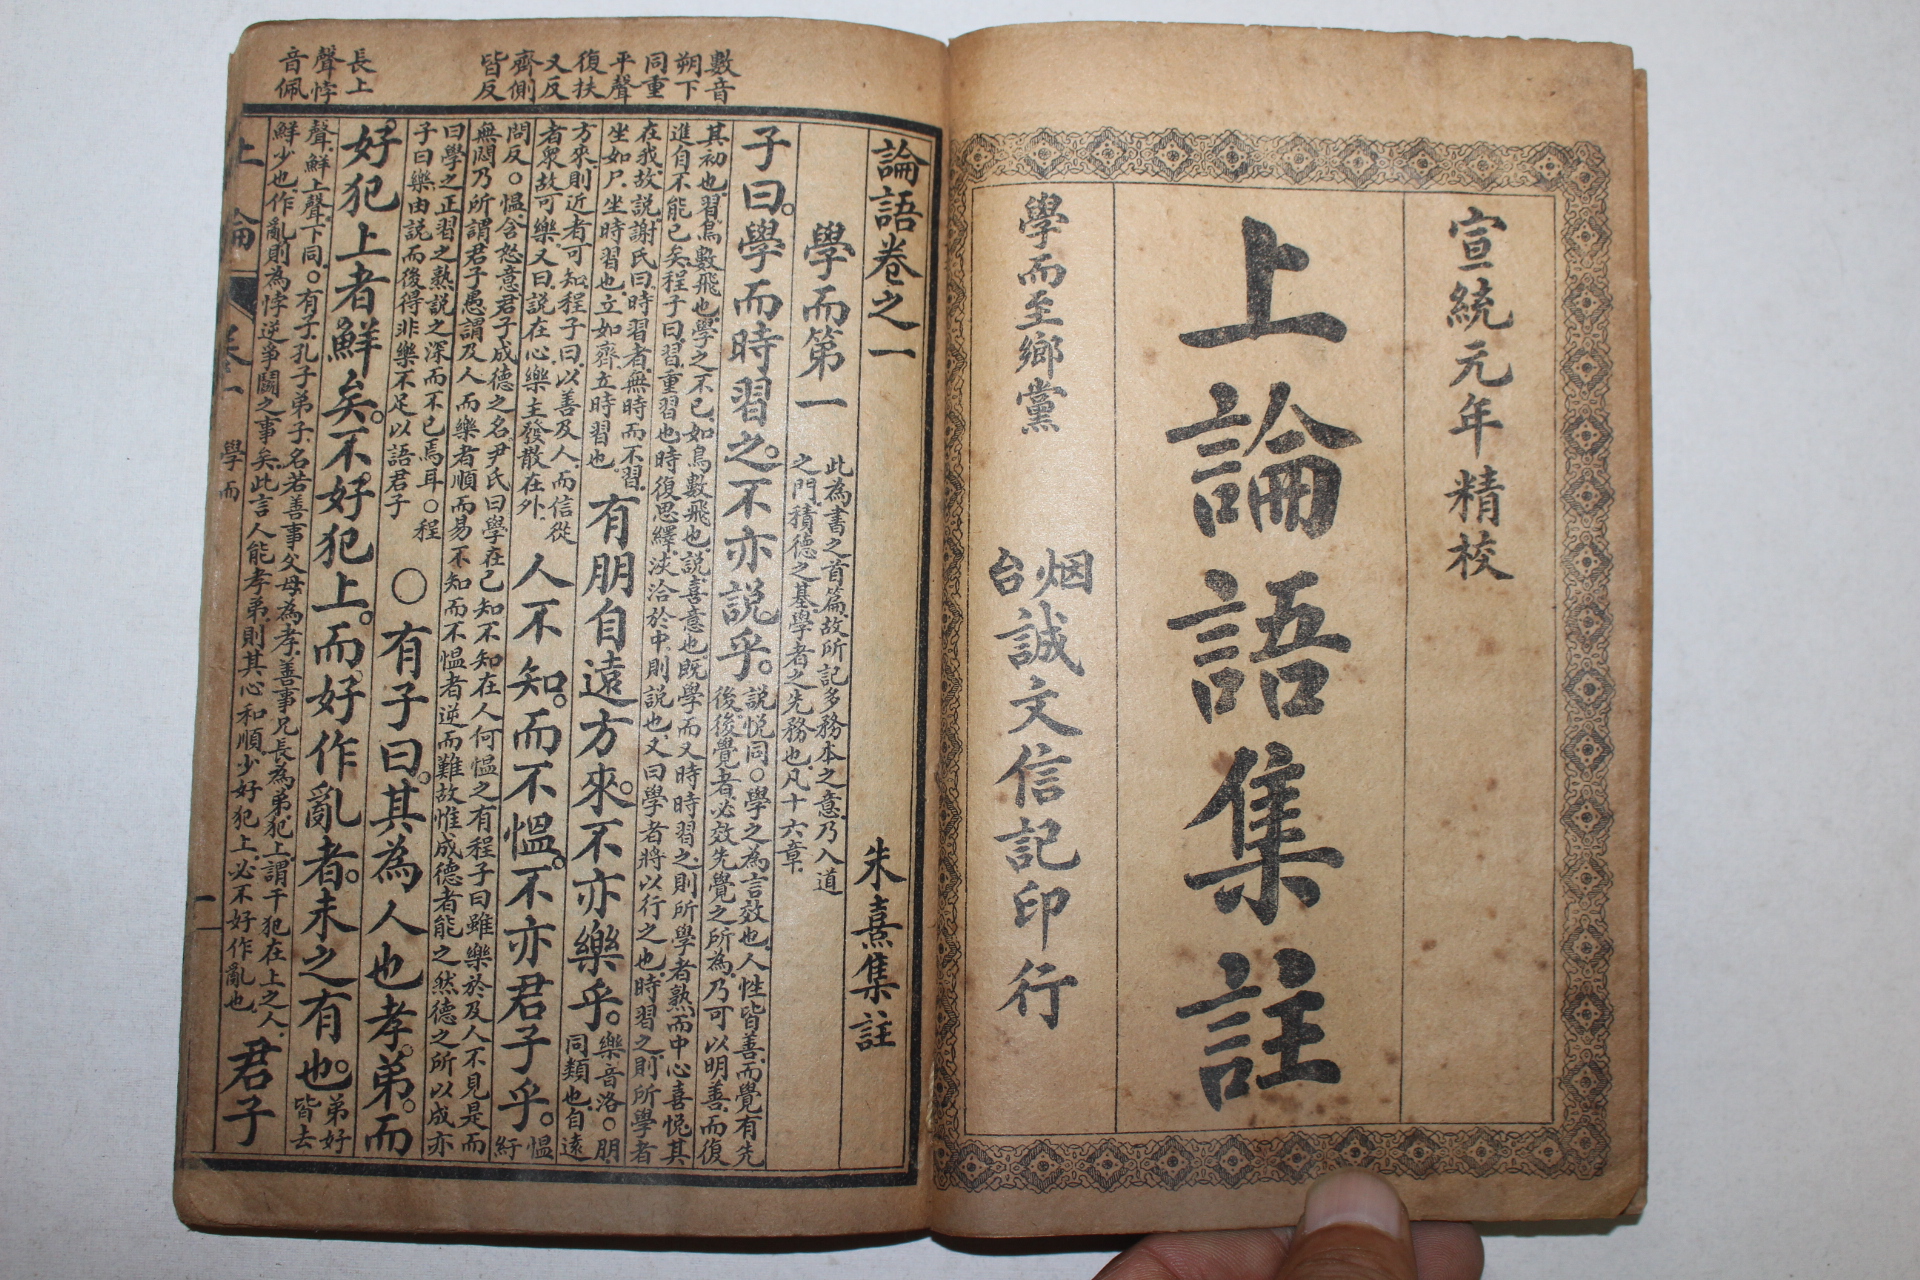 宣統元年精校
上論語集註
學而至鄉黨
烟台
誠文信記印行
數音
朔下
同重
平聲
復扶
又反
齊側
皆反
長上
聲悖
音佩
論語卷之一 朱熹集註
學而第一
此為書之首篇故所記多務本之意乃入道
之門積德之基學者之先務也凡十六章
子曰。學而時習之。不亦説乎。
説悅同○學之為言效也人性皆善而覺有先
後後覺者必效先覺之所為乃可以明善而復
其初也習鳥數飛也學之不已如鳥數飛也説喜意也既學而又時時習之則所學者熟而中心喜悅其
進自不能已矣程子曰習重習也時復思繹浹洽於中則説也又曰學者將以行之也時習之則所學者
在我故説謝氏曰時習者無時而不習
坐如尸坐時習也立如齊立時習也
有朋自遠方來。不亦樂乎。
樂音洛○朋
同類也自遠
方來則近者可知程子曰以善及人而信從
者衆故可樂又曰説在心樂主發散在外
人不知。而不慍。不亦君子乎。
慍
紆
問反○慍含怒意君子成德之名尹氏曰學在己知不知在人何慍之有程子曰雖樂於及人不見是而
無悶乃所謂君子愚謂及人而樂者順而易不知而不慍者逆而難故惟成德者能之然德之所以成亦
曰學之正習之熟説之深而不已焉耳○程
子曰樂由説而後得非樂不足以語君子
○有子曰。其為人也孝。弟。而
好犯上者鮮矣。不好犯上。而好作亂者。未之有也。
弟好
皆去
聲鮮上聲下同○有子孔子弟子名若善事父母為孝善事兄長為弟犯上謂干犯在上之人
鮮少也作亂則為悖逆爭鬭之事矣此言人能孝弟則其心和順少好犯上必不好作亂也
君子
上論
卷一
學而
一